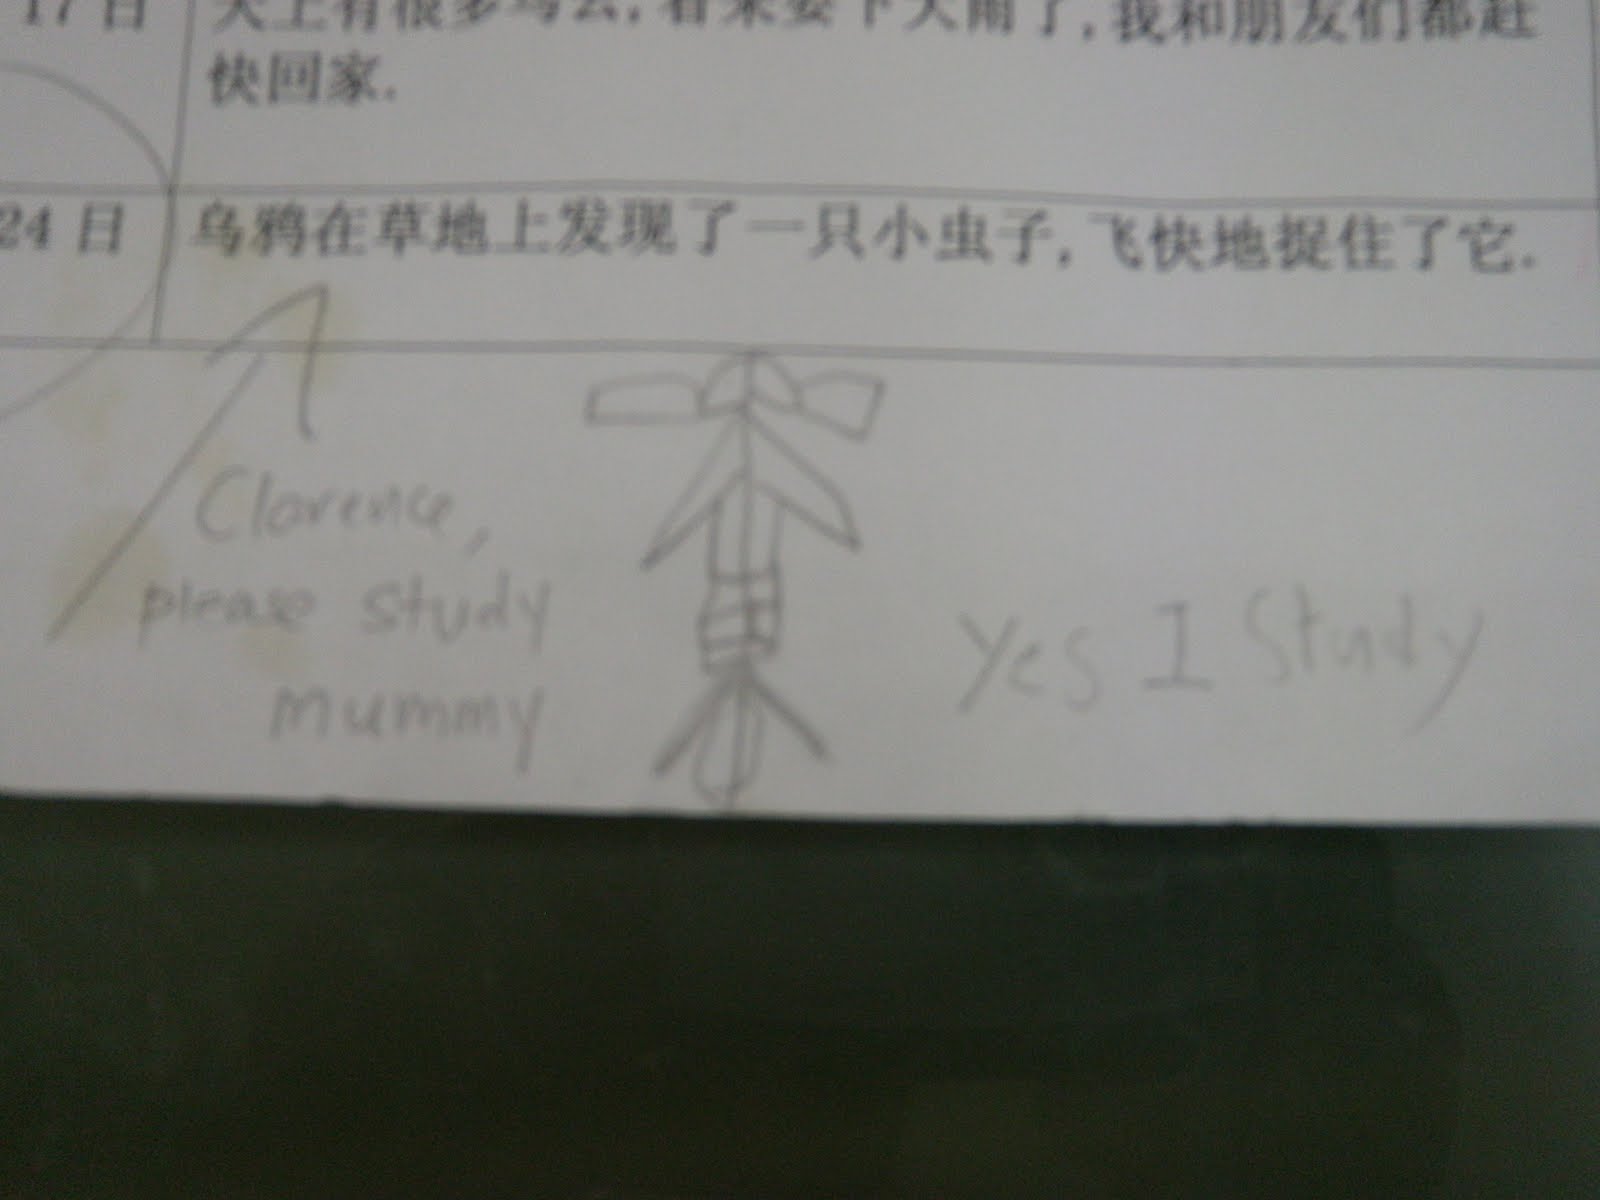 17日 天上有很多乌云,看来要下大雨了,我和朋友们都赶
快回家.
24日 乌鸦在草地上发现了一只小虫子,飞快地捉住了它.
Clarence,
please study
mummy
Yes I Study